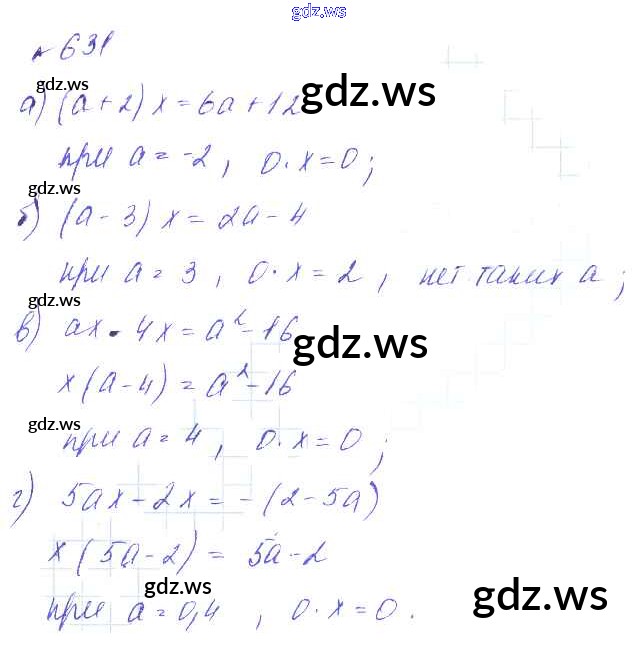 gdz.ws
№ 631
gdz.ws
а) (a+2)x = 6a+12
gdz.ws
при a = -2, 0·x=0;
gdz.ws
б) (a-3)x = 2a-4
при a = 3, 0·x = 2, нет таких a;
gdz.ws
в) ax - 4x = a²-16
gdz.ws
x(a-4) = a²-16
gdz.ws
при a = 4, 0·x=0;
г) 5ax-2x = -(2-5a)
x(5a-2) = 5a-2
gdz.ws
gdz.ws
при a=0,4, 0·x=0.